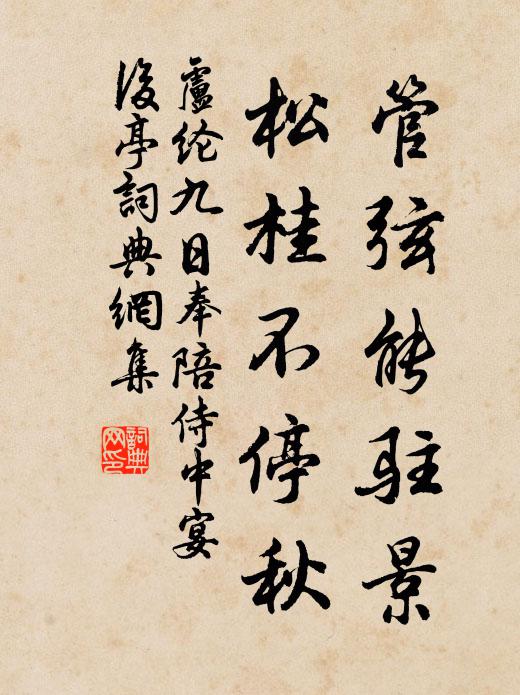 管弦能駐景
松桂不停秋
盧纶九日奉陪侍中宴
後亭詞典網集
詞典
网印